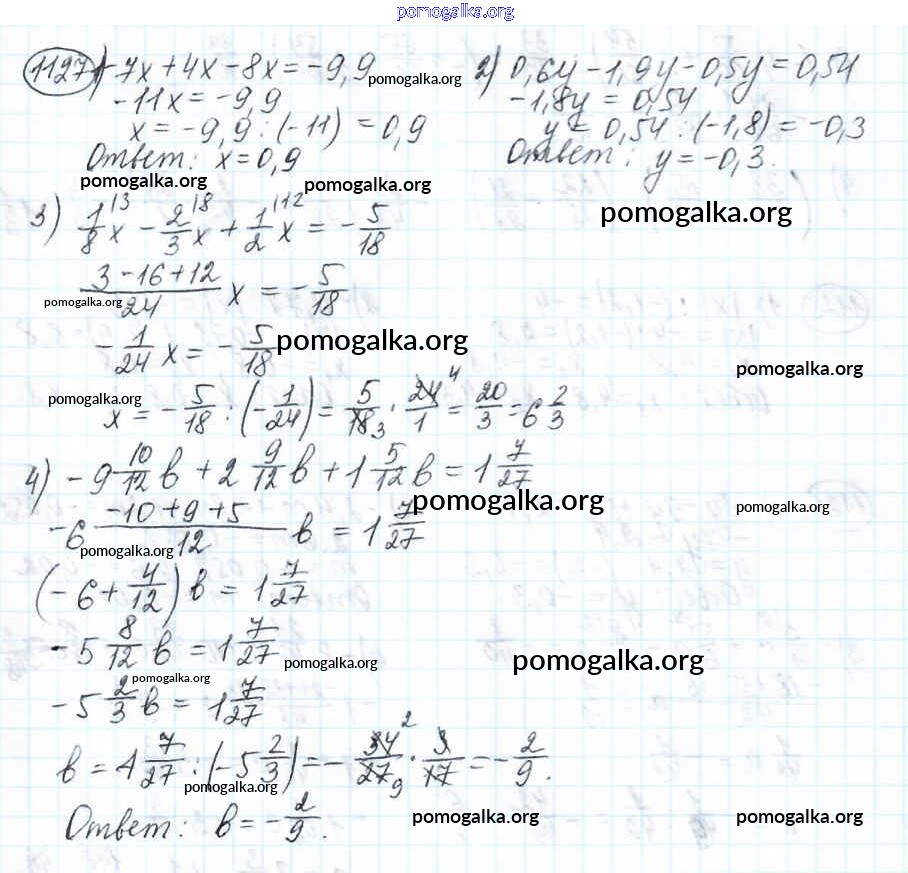 pomogalka.org
1127 1) -7x + 4x - 8x = -9,9 pomogalka.org
-11x = -9,9
x = -9,9 : (-11) = 0,9
Ответ: x = 0,9
pomogalka.org pomogalka.org
2) 0,6y - 1,9y - 0,5y = 0,54
-1,8y = 0,54
y = 0,54 : (-1,8) = -0,3
Ответ: y = -0,3.
pomogalka.org
3) 1/8 |3 x - 2/3 |8 x + 1/2 |12 x = - 5/18
(3 - 16 + 12)/24 x = - 5/18
pomogalka.org
- 1/24 x = - 5/18 pomogalka.org
pomogalka.org
pomogalka.org
x = - 5/18 : (- 1/24) = 5/18 3 · 24/1 4 = 20/3 = 6 2/3
4) -9 10/12 в + 2 9/12 в + 1 5/12 в = 1 7/27
pomogalka.org pomogalka.org
-6 (-10 + 9 + 5)/12 в = 1 7/27
pomogalka.org
(-6 + 4/12) в = 1 7/27
-5 8/12 в = 1 7/27
pomogalka.org pomogalka.org
pomogalka.org
-5 2/3 в = 1 7/27
в = 1 7/27 : (-5 2/3) = - 34/27 2 9 · 3/17 = - 2/9.
pomogalka.org
Ответ: в = - 2/9.
pomogalka.org pomogalka.org